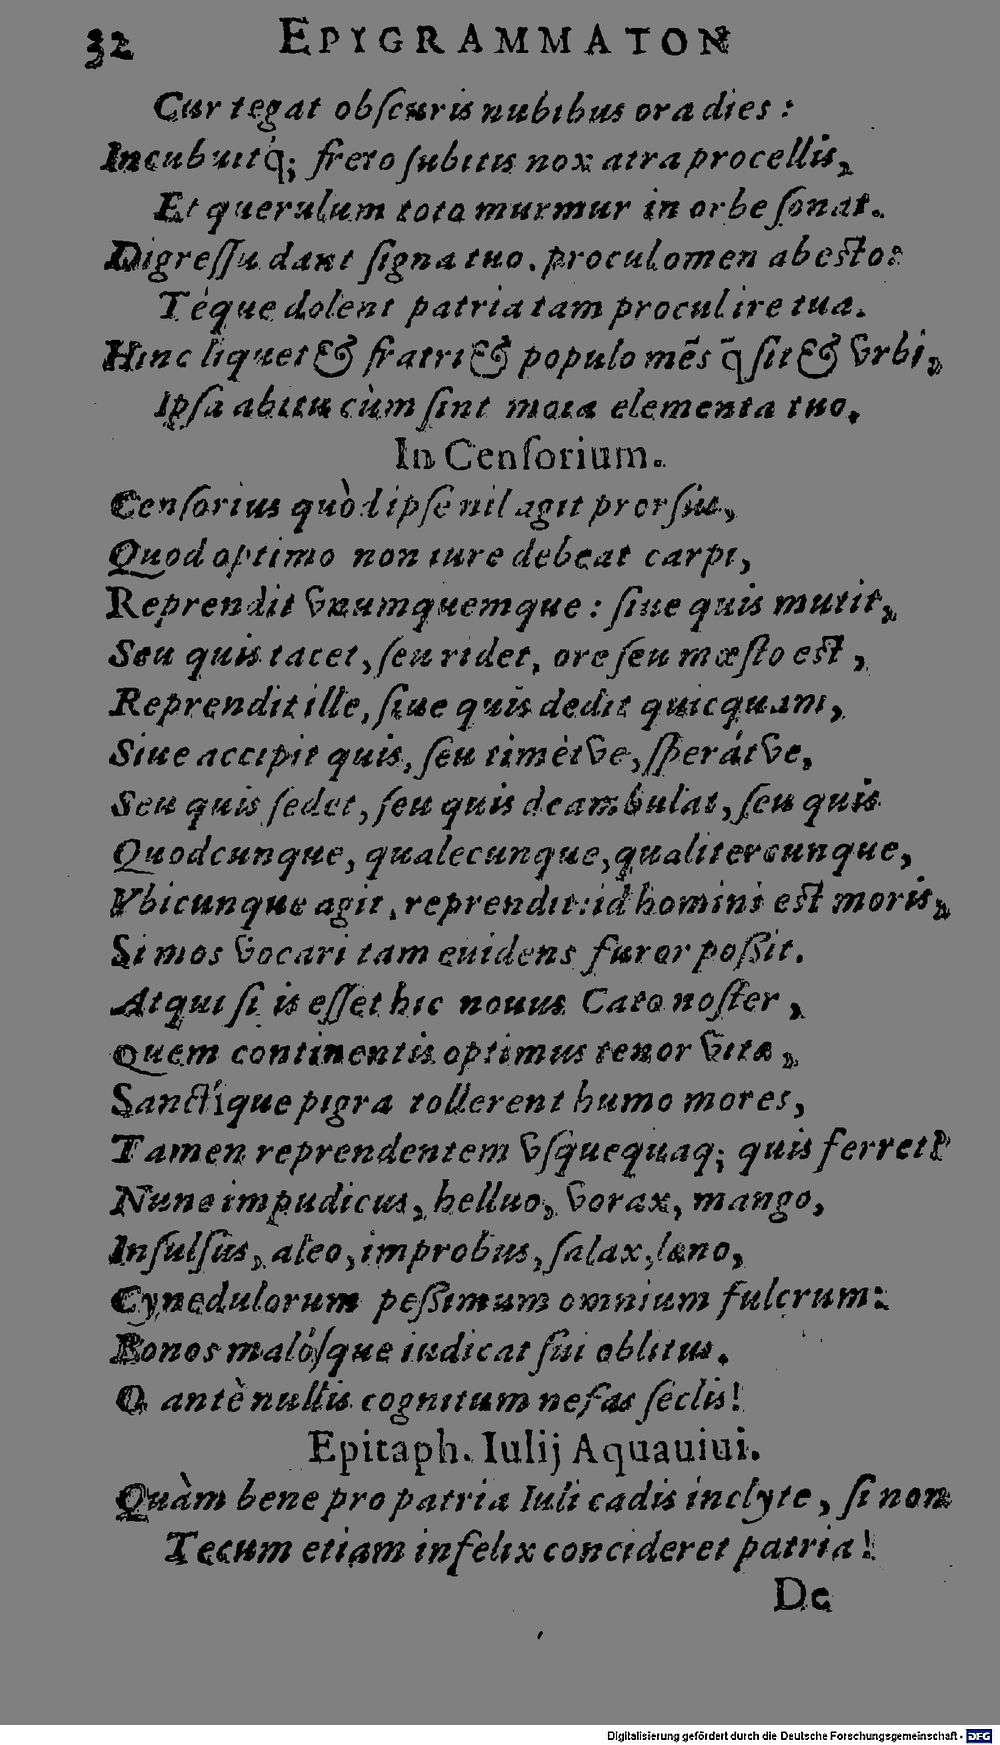 32 EPYGRAMMATON
Cur tegat obſcuris nubibus ora dies:
Incubuitq́; freto ſubitis nox atra procellis,
Et querulum toto murmur in orbe ſonat.
Digreſſu dant ſigna tuo. procul omen abeſto:
Téque dolent patria tam procul ire tua.
Hinc liquet & fratri & populo mēs q̄ ſit & vrbi,
Ipſa abitu cùm ſint mota elementa tuo.
In Cenſorium.
Cenſorius quòd ipſe nil agit prorſus,
Quod optimo non iure debeat carpi,
Reprendit vnumquemque: ſiue quis mutit,
Seu quis tacet, ſeu ridet, ore ſeu mœſto eſt,
Reprendit ille, ſiue quis dedit quicquam,
Siue accipit quis, ſeu timètve, ſperátve,
Seu quis ſedet, ſeu quis deambulat, ſeu quis
Quodcunque, qualecunque, qualitercunque,
Vbicunque agit, reprendit: id homini eſt moris,
Si mos vocari tam euidens furor poßit.
Atqui ſi is eſſet hic nouus Cato noſter,
Quem continentis optimus tenor vitæ,
Sanctíque pigra tollerent humo mores,
Tamen reprendentem vſquequaq; quis ferret?
Nunc impudicus, helluo, vorax, mango,
Inſulſus, aleo, improbus, ſalax, leno,
Cynedulorum peßimum omnium fulcrum:
Bonos malóſque iudicat ſui oblitus.
O antè nullis cognitum nefas ſeclis!
Epitaph. Iulij Aquauiui.
Quàm bene pro patria Iuli cadis inclyte, ſi non
Tecum etiam infelix concideret patria!
De
Digitalisierung gefördert durch die Deutsche Forschungsgemeinschaft - DFG